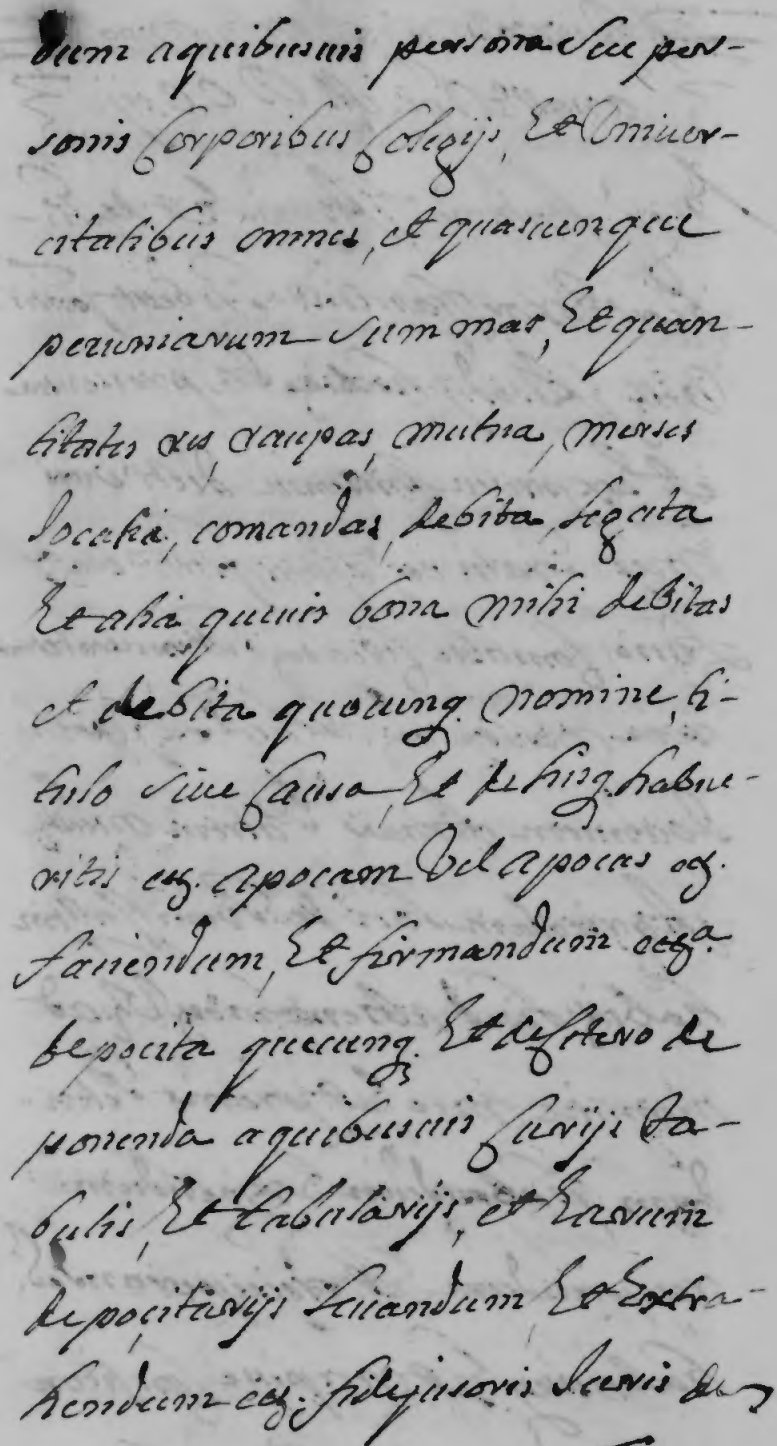 dum aquibusuis persona seu per-
sonis Corporibus Colegijs, Et Vniver-
citatibus omnes, et quascunque
pecuniarum summas, Et quan-
titates res, raupas, mutua, merses
Jocalia, comandas, debita, legata
Et alia queuis bona mihi debitas
et debita quocunq. nomine, ti-
tulo siue Causa, Et de hisq. habue-
ritis etz. apocam Vel apocas etz.
faciendum, Et firmandum
depocita quecunq. Et de Cetero de
ponenda aquibusuis Curijs ta-
bulis, Et tabularijs, et Earum
depocitarijs leuandum, Et Extra-
hendum etz. fidejusoris Juris de